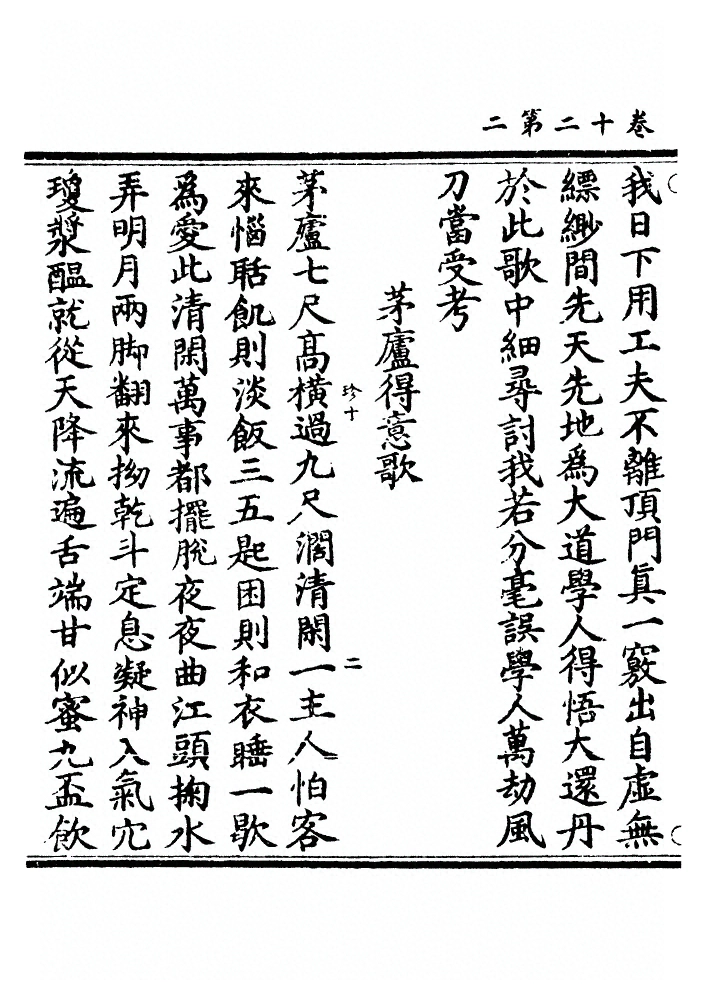 卷十二第二
我日下用工夫不離頂門眞一竅出自虛無
縹緲間先天先地爲大道學人得悟大還丹
於此歌中細尋討我若分毫誤學人萬劫風
刀當受考
茅廬得意歌
珍十
二
茅廬七尺高橫過九尺濶清閑一主人怕客
來惱聒飢則淡飯三五匙困則和衣睡一歇
爲愛此清閑萬事都擺脫夜夜曲江頭掬水
弄明月兩脚翻來拗乾斗定息凝神入氣穴
瓊漿醖就從天降流遍舌端甘似蜜九盃飲